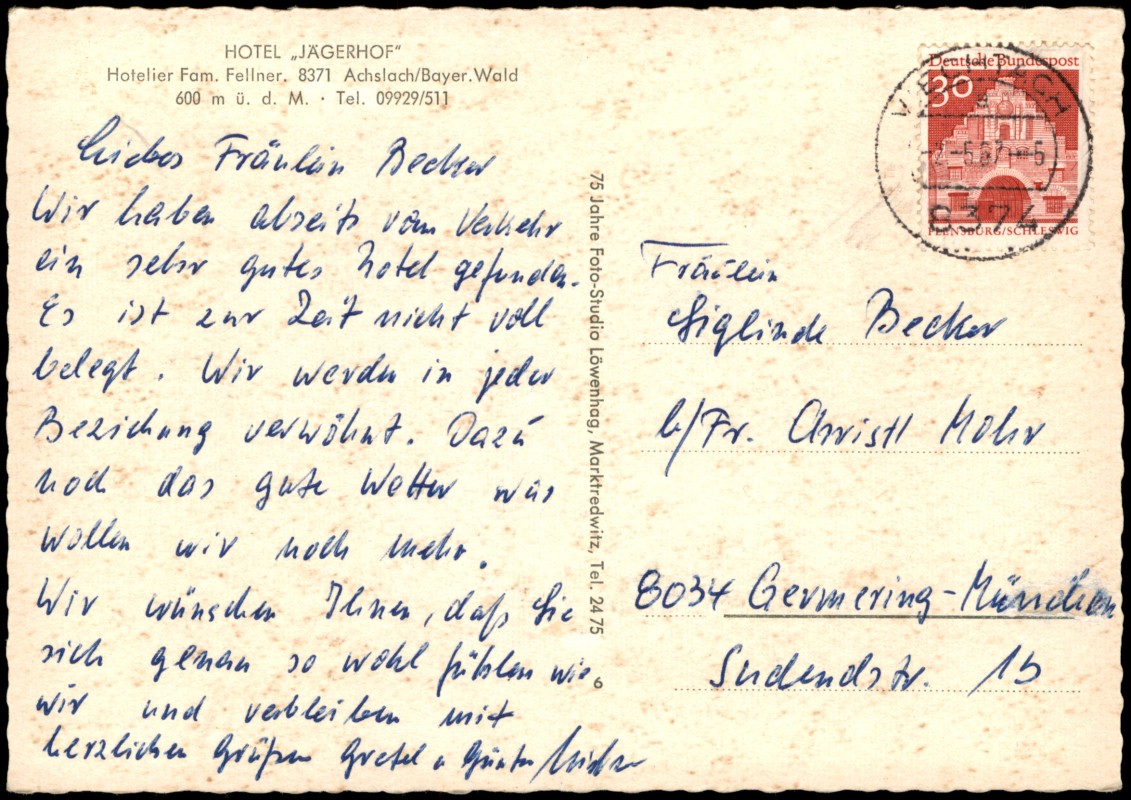 HOTEL „JÄGERHOF“
Hotelier Fam. Fellner. 8371 Achslach/Bayer. Wald
600 m ü. d. M. · Tel. 09929/511
Liebes Fräulein Becker
Wir haben abseits vom Verkehr
ein sehr gutes Hotel gefunden.
Es ist zur Zeit nicht voll
belegt. Wir werden in jeder
Beziehung verwöhnt. Dazu
noch das gute Wetter was
wollen wir noch mehr.
Wir wünschen Ihnen, daß Sie
sich genau so wohl fühlen wie
wir und verbleiben mit
herzlichen Grüßen Gretel u Günter
75 Jahre Foto-Studio Löwenhag, Marktredwitz, Tel. 24 75
6
Deutsche Bundespost
30
FLENSBURG/SCHLESWIG
VIECHTACH
a
8374
Fräulein
Siglinde Becker
b/Fr. Christl Mohr
8034 Germering-München
Südendstr. 15